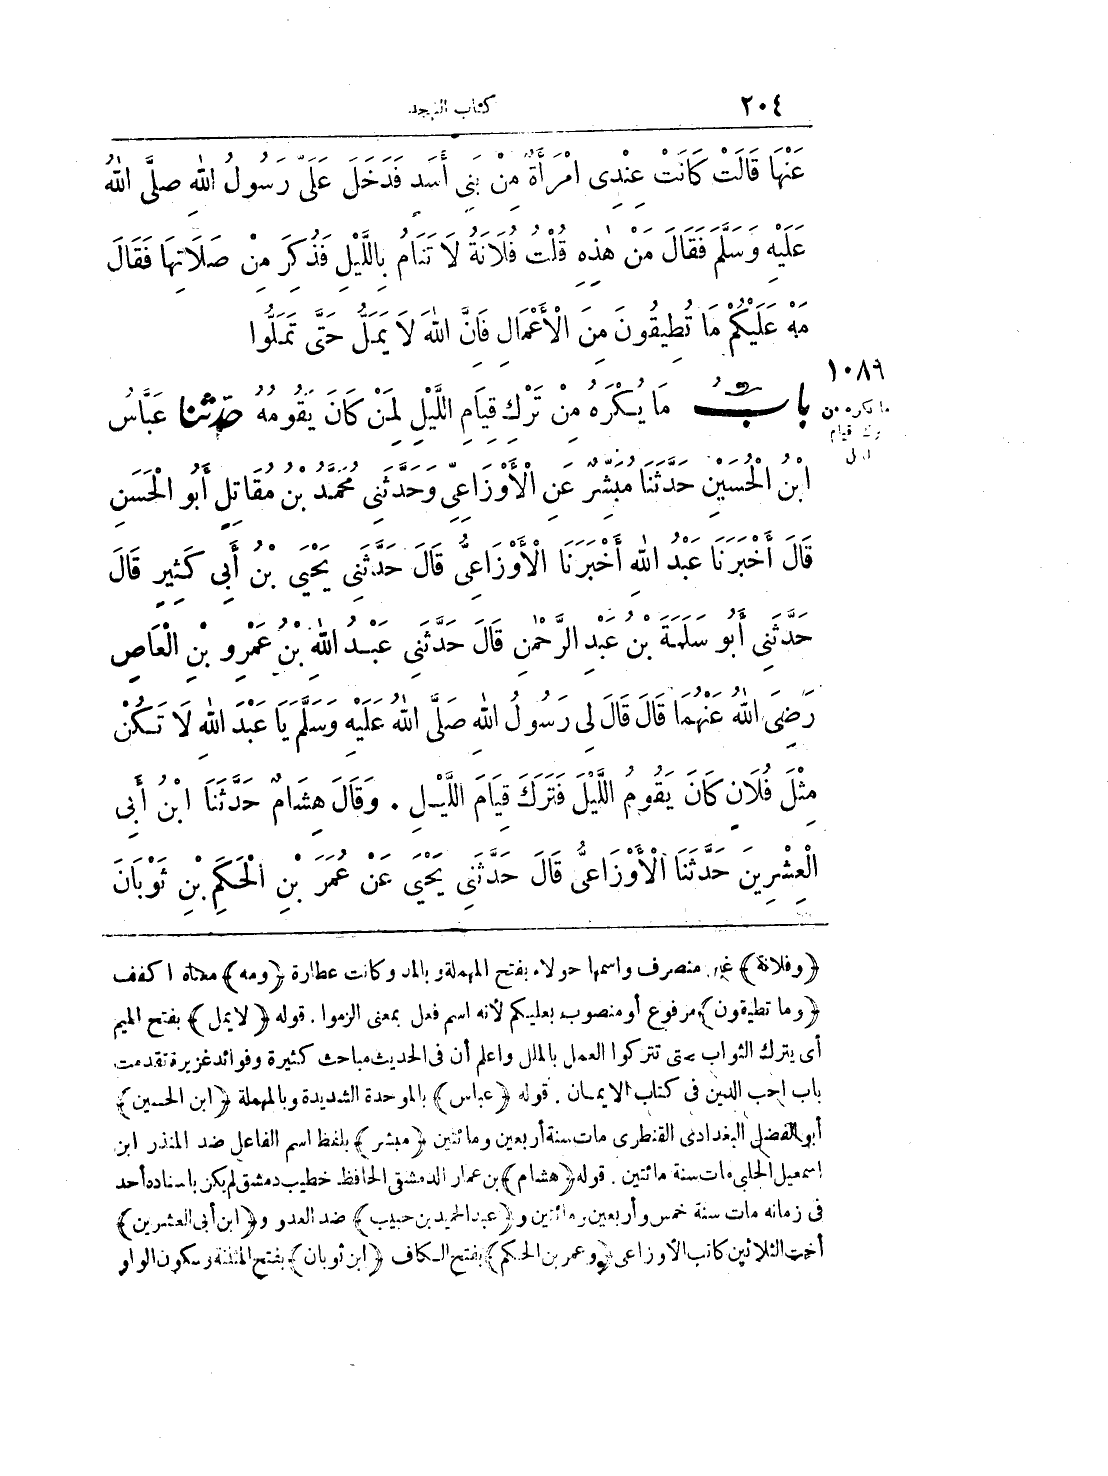 ٢٠٤
كتاب التهجد
عَنْهَا قَالَتْ كَانَتْ عِنْدِى امْرَأَةٌ مِنْ بَنِى أَسَدٍ فَدَخَلَ عَلَىَّ رَسُولُ اللّٰهِ صلَّى اللّٰهُ
عَلَيْهِ وَسَلَّمَ فَقَالَ مَنْ هٰذِهِ قُلْتُ فُلَانَةُ لَا تَنَامُ بِاللَّيْلِ فَذُكِرَ مِنْ صَلَاتِهَا فَقَالَ
مَهْ عَلَيْكُمْ مَا تُطِيقُونَ مِنَ الْأَعْمَالِ فَانَّ اللّٰهَ لَا يَمَلُّ حَتَّى تَمَلُّوا
١٠٨٩
ما يكره من
ترك قيام
باب مَا يُكْرَهُ مِنْ تَرْكِ قِيَامِ اللَّيْلِ لِمَنْ كَانَ يَقُومُهُ حدثنا عَبَّاسُ
ابْنُ الْحُسَيْنِ حَدَّثَنَا مُبَشِّرٌ عَنِ الْأَوْزَاعِىِّ وَحَدَّثَنِى مُحَمَّدُ بْنُ مُقَاتِلٍ أَبُو الْحَسَنِ
قَالَ أَخْبَرَنَا عَبْدُ اللّٰهِ أَخْبَرَنَا الْأَوْزَاعِىُّ قَالَ حَدَّثَنِى يَحْيَى بْنُ أَبِى كَثِيرٍ قَالَ
حَدَّثَنِى أَبُو سَلَمَةَ بْنُ عَبْدِ الرَّحْمٰنِ قَالَ حَدَّثَنِى عَبْدُ اللّٰهِ بْنُ عَمْرِو بْنِ الْعَاصِ
رَضِىَ اللّٰهُ عَنْهُمَا قَالَ قَالَ لِى رَسُولُ اللّٰهِ صَلَّى اللّٰهُ عَلَيْهِ وَسَلَّمَ يَا عَبْدَ اللّٰهِ لَا تَكُنْ
مِثْلَ فُلَانٍ كَانَ يَقُومُ اللَّيْلَ فَتَرَكَ قِيَامَ اللَّيْلِ . وَقَالَ هِشَامٌ حَدَّثَنَا ابْنُ أَبِى
الْعِشْرِينَ حَدَّثَنَا الْأَوْزَاعِىُّ قَالَ حَدَّثَنِى يَحْيَى عَنْ عُمَرَ بْنِ الْحَكَمِ بْنِ ثَوْبَانَ
﴿وفلانة﴾ غير منصرف واسمها حولاء بفتح المهملة وبالمد وكانت عطارة ﴿ومه﴾ معناه اكفف
﴿وما تطيقون﴾ مرفوع أو منصوب بعليكم لأنه اسم فعل بمعنى الزموا . قوله ﴿لايمل﴾ بفتح الميم
أى يترك الثواب حتى تتركوا العمل بالملل واعلم أن فى الحديث مباحث كثيرة وفوائد غزيرة تقدمت
باب احب الدين فى كتاب الايمان . قوله ﴿عباس﴾ بالموحدة الشديدة وبالمهملة ﴿ابن الحسين﴾
أبو الفضل البغدادى القنطرى مات سنة أربعين ومائتين ﴿مبشر﴾ بلفظ اسم الفاعل ضد المنذر ابن
اسمعيل الحلبى مات سنة مائتين . قوله ﴿هشام﴾ بن عمار الدمشقى الحافظ خطيب دمشق لم يكن باسناده أحد
فى زمانه مات سنة خمس وأربعين ومائتين و﴿عبد الحميد بن حبيب﴾ ضد العدو و﴿ابن أبى العشرين﴾
أخت الثلاثين كاتب الأوزاعى ﴿وعمر بن الحكم﴾ بفتح الكاف ﴿ابن ثوبان﴾ بفتح المثلثة وسكون الواو